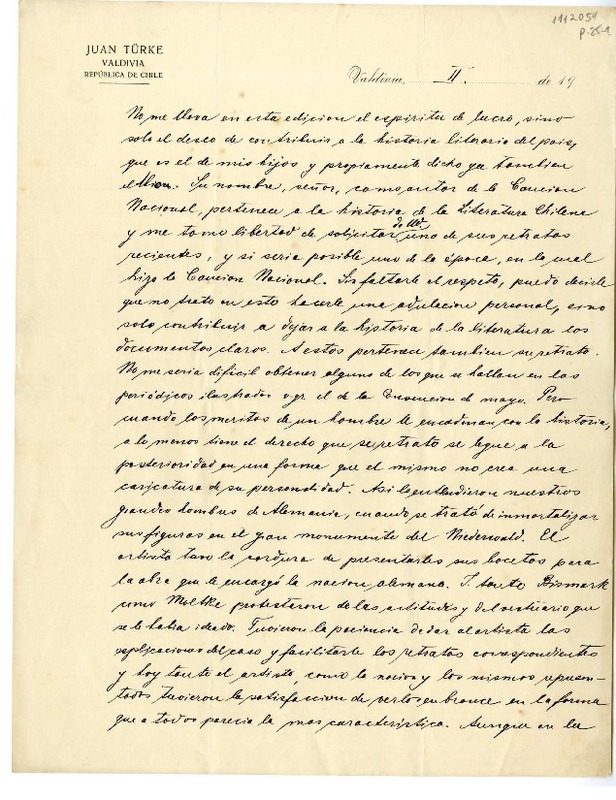 1112054
p. 25-1
JUAN TÜRKE
VALDIVIA
REPÚBLICA DE CHILE
Valdivia, II. de 19
No me lleva en esta edicion el espiritu de lucro, sino
solo el deseo de contribuir a la historia literaria del pais,
que es el de mis hijos y propiamente dicho ya tambien
el mio. Su nombre, señor, como autor de la Cancion
Nacional, pertenece a la historia de la Literatura Chilena
de Ud.
y me tomo libertad de solicitar uno de sus retratos
recientes, y si seria posible uno de la época, en la cual
hizo la Cancion Nacional. Sin faltarle el respeto, puedo decirle
que no trato en esto hacerle una adulacion personal, sino
solo contribuir a dejar a la historia de la literatura los
documentos claros. A estos pertenece tambien su retrato.
No me seria dificil obtener alguno de los que se hallan en los
periódicos ilustrados o gr. el de la de mayo. Pero
cuando los meritos de un hombre le encadenan con la historia,
a lo menos tiene el derecho que se retrato se legue a la
posterioridad en una forma que el mismo no crea una
caricatura de su personalidad. Asi lo entendieron nuestros
grandes hombres de Alemania, cuando se trató de inmortalizar
sus figuras en el gran monumento del Niederwald. El
artista tuvo la cordura de presentarles sus bocetos para
la obra que le encargó la nacion alemana. I tanto Bismark
como Moltke protestaron de las actitudes y del vestuario que
se le habia ideado. Tuvieron la paciencia de dar al artista las
esplicaciones del caso y facilitarle los retratos correspondientes
y hoy tanto el artista, como la nacion y los mismos represen-
tados tuvieron la satisfaccion de verlos en bronce en la forma
que a todos parecia la mas caracteristica. Aunque en la